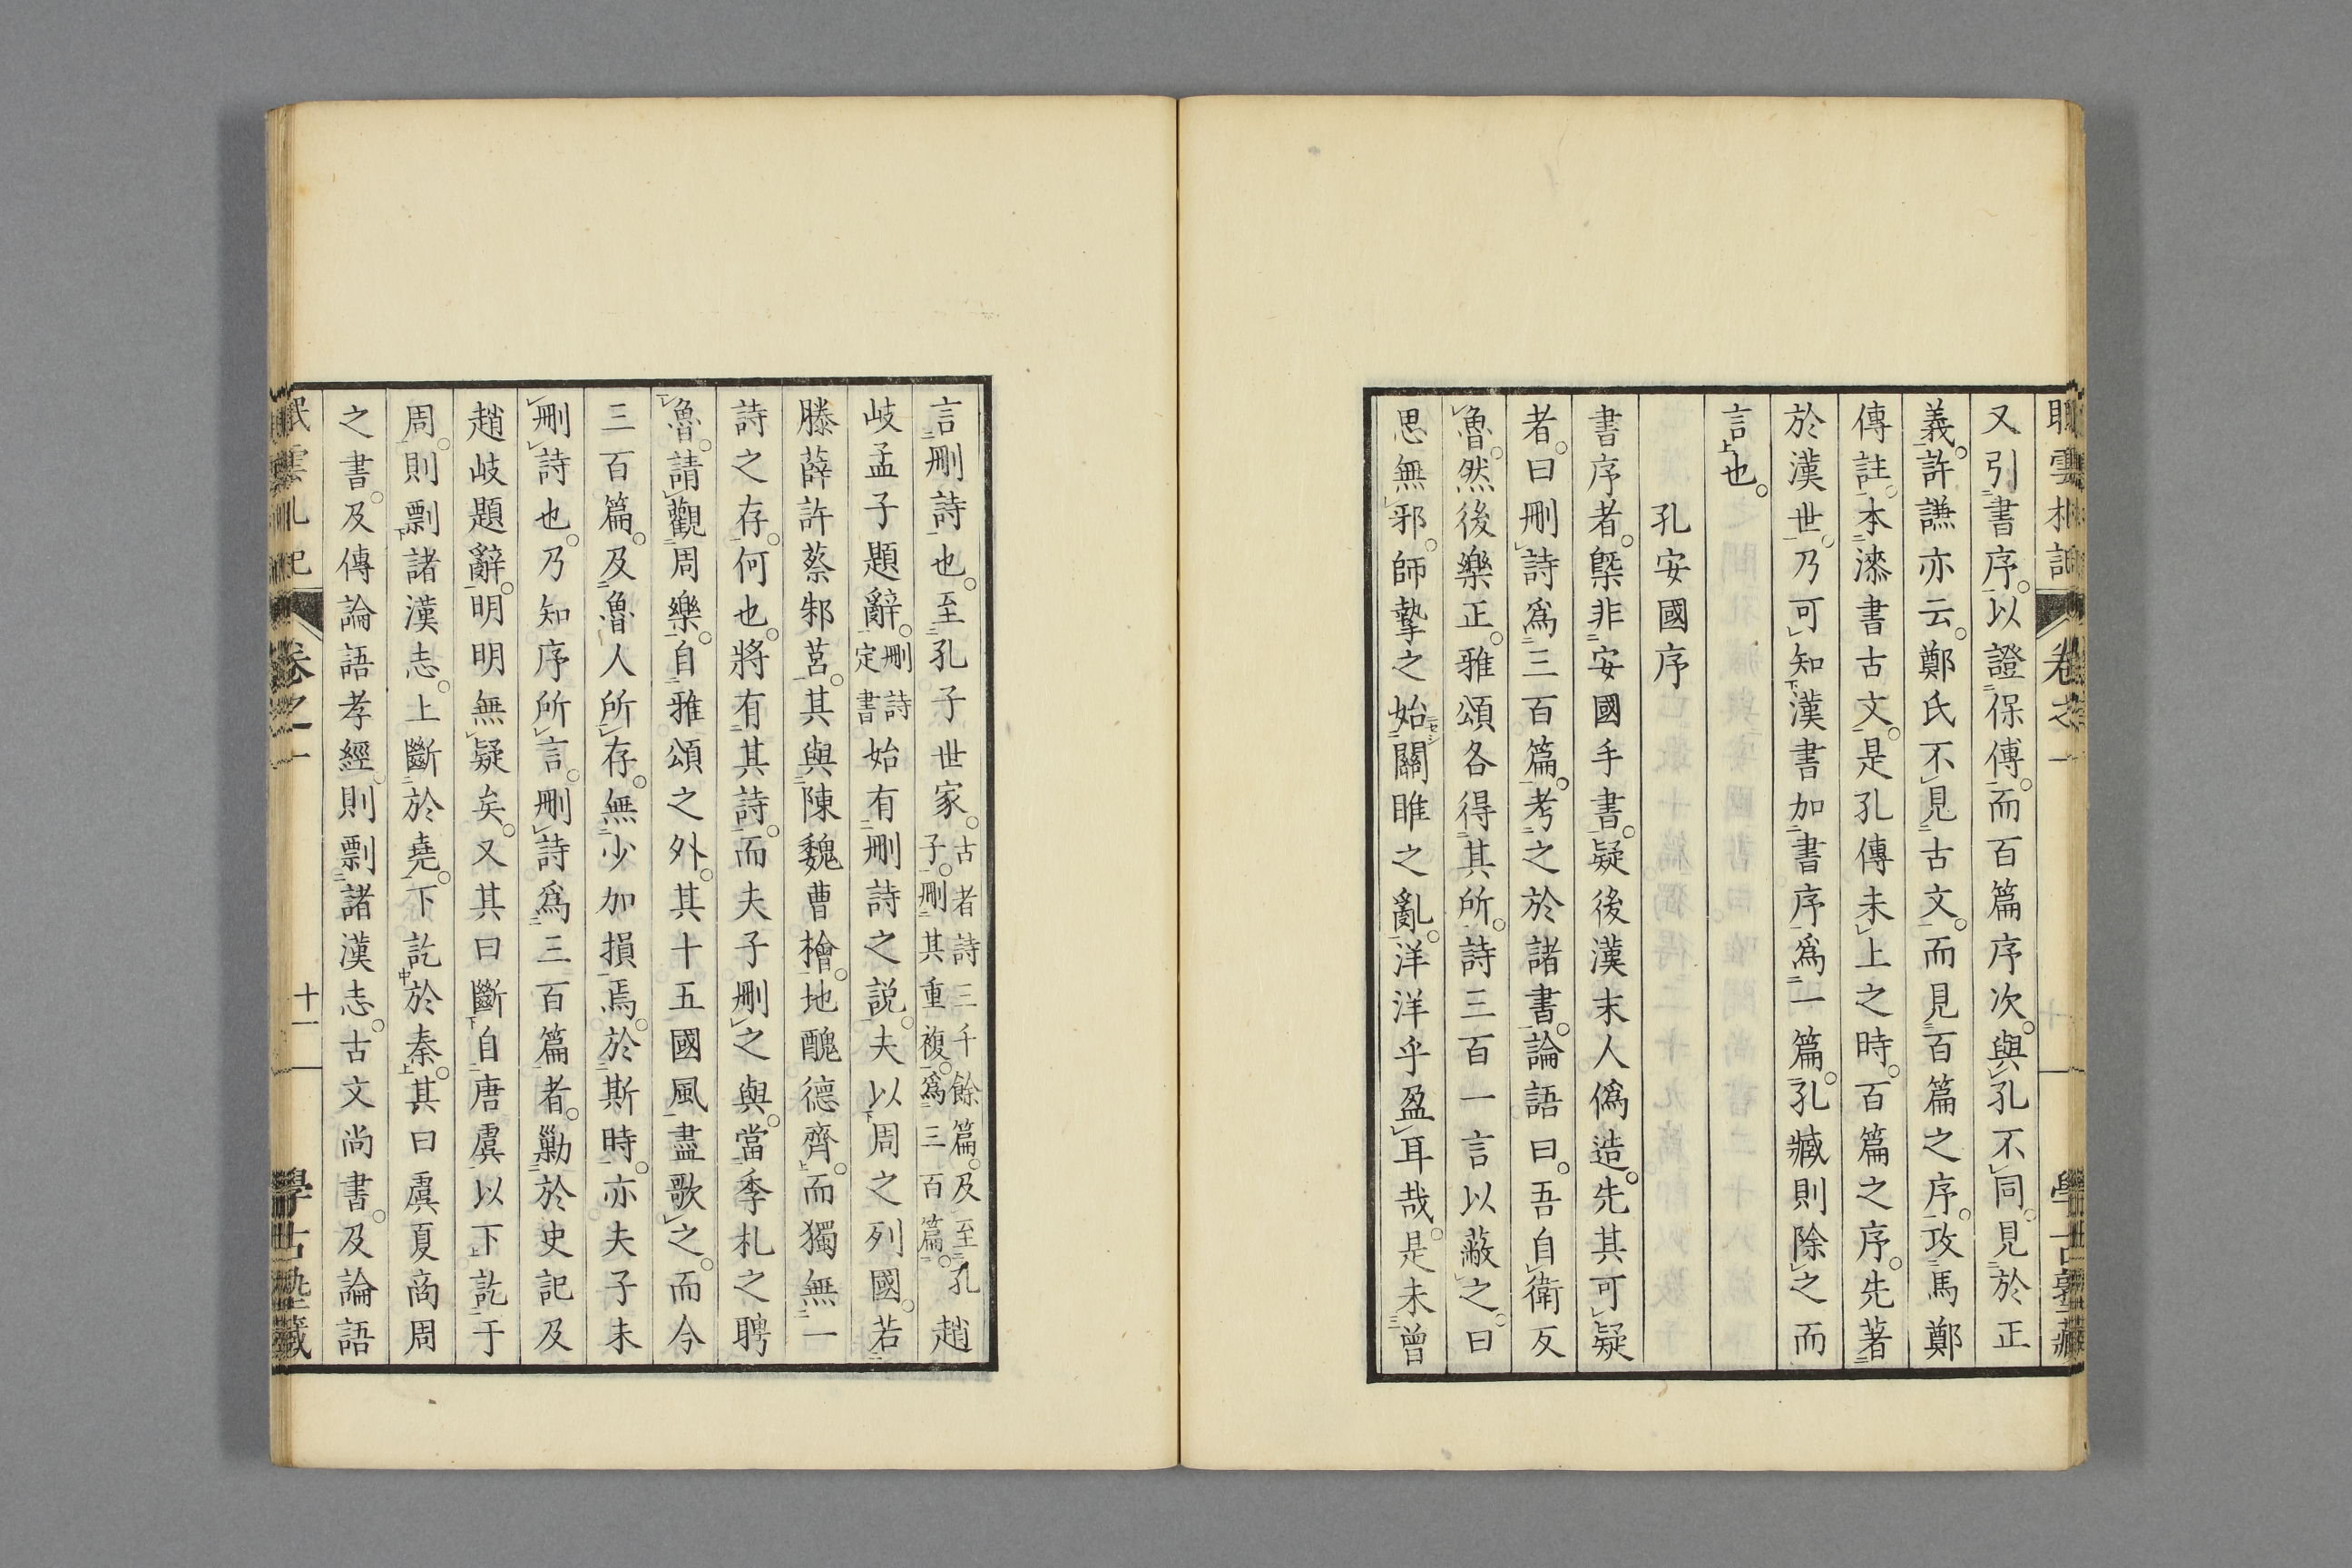 又引書序。以證保傳。而百篇序次。與孔不同。見於正
義。許謙亦云。鄭氏不見古文。而見百篇之序。攷馬鄭
傳註。本漆書古文。是孔傳未上之時。百篇之序。先著
於漢世。乃可知漢書加書序爲一篇。孔臧則除之而
言也。
孔安國序
書序者。槩非安國手書。疑後漢末人僞造。先其可疑
者。曰刪詩爲三百篇。考之於諸書。論語曰。吾自衛反
魯。然後樂正。雅頌各得其所。詩三百一言以蔽之。曰
思無邪。師摯之始關雎之亂。洋洋乎盈耳哉。是未曾
言刪詩也。至孔子世家。古者詩三千餘篇。及至孔子。刪其重複。爲三百篇。趙
岐孟子題辭。刪詩定書始有刪詩之説。夫以周之列國。若
滕薛許蔡邾莒。其與陳魏曹檜。地醜德齊。而獨無一
詩之存。何也。將有其詩。而夫子刪之與。當季札之聘
魯。請觀周樂。自雅頌之外。其十五國風盡歌之。而今
三百篇。及魯人所存。無少加損焉。於斯時。亦夫子未
刪詩也。乃知序所言。刪詩爲三百篇者。勦於史記及
趙岐題辭。明明無疑矣。又其曰斷自唐虞以下訖于
周。則剽諸漢志。上斷於堯。下訖於秦。其曰虞夏商周
之書。及傳論語孝經。則剽諸漢志。古文尚書。及論語
卷之一
十一